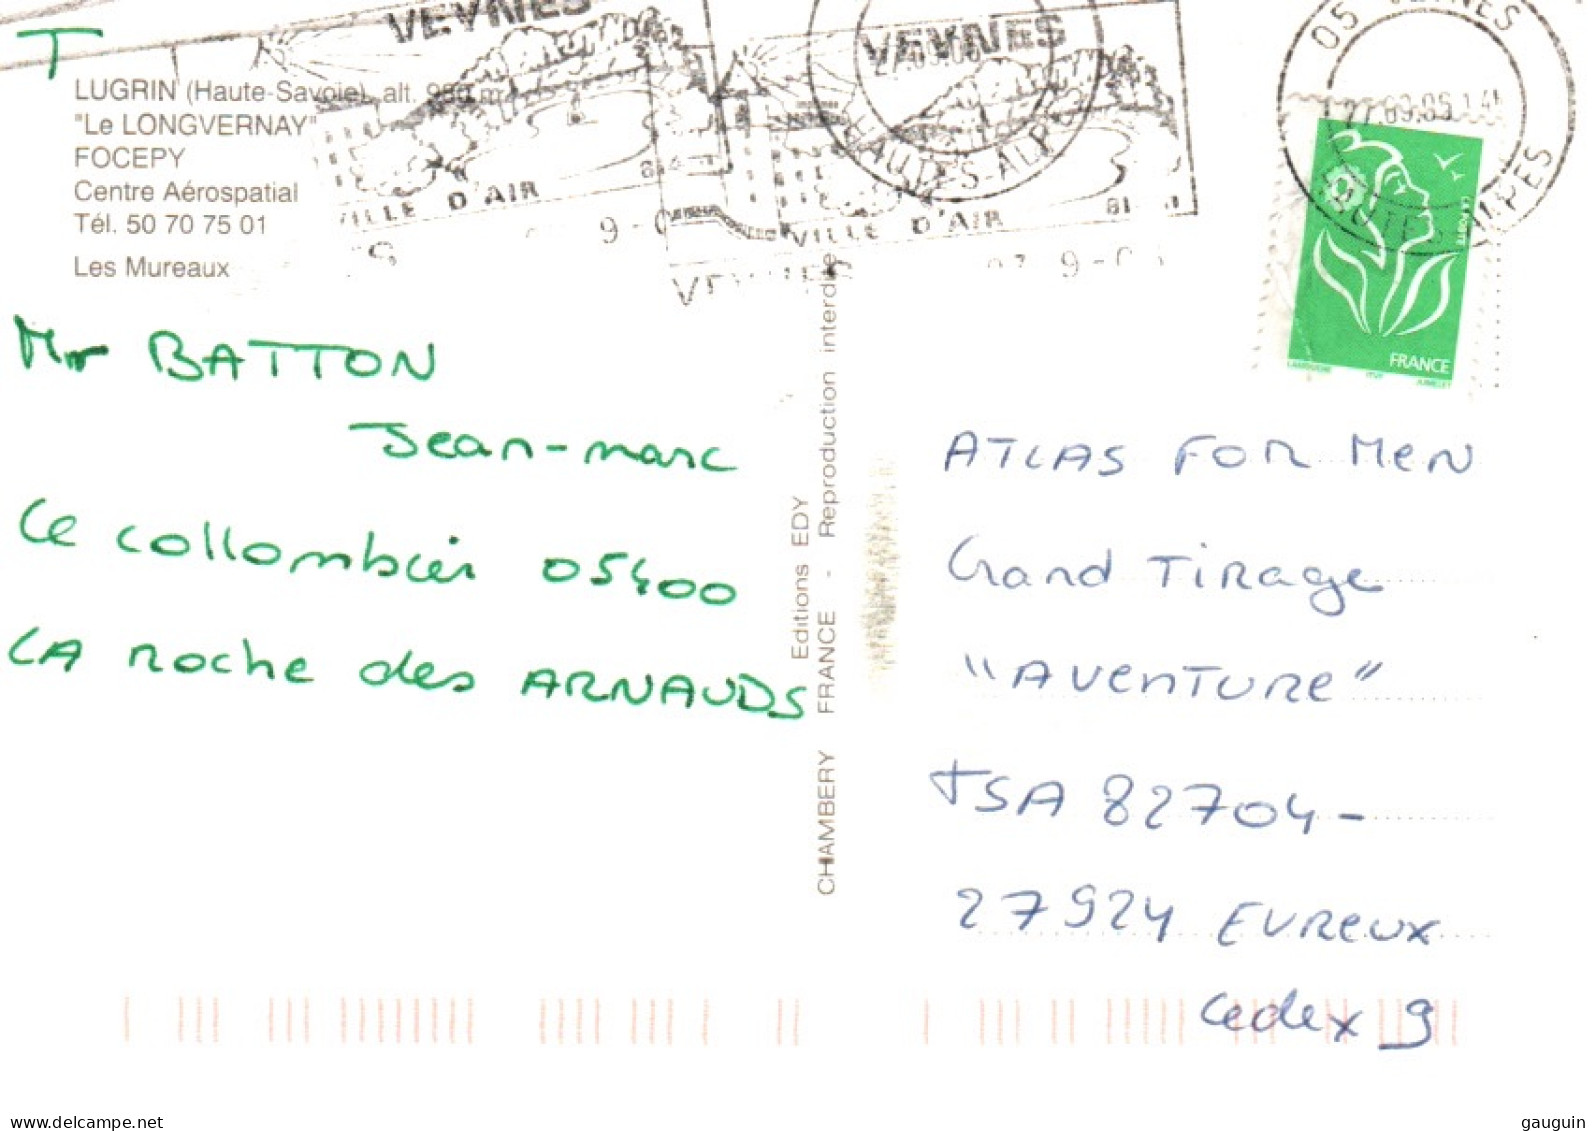 T
LUGRIN (Haute-Savoie), alt. 950 m
"Le LONGVERNAY"
FOCEPY
Centre Aérospatial
Tél. 50 70 75 01
Les Mureaux
VEYNES
VILLE D'AIR
VEYNES
HAUTES-ALPES
VILLE D'AIR
9-0
05 VEYNES
27.09.05
HAUTES-ALPES
LA POSTE
FRANCE
LAMOUCHE ITVF JUMELET
Mr BATTON
Jean-marc
Le collombier 05400
LA Roche des ARNAUDS
Editions EDY
CHAMBERY FRANCE - Reproduction interdite
ATLAS FOR MEN
Grand TIRAGE
"AVENTURE"
TSA 82704-
27924 EVREUX
Cedex 9
delcampe.net
gauguin